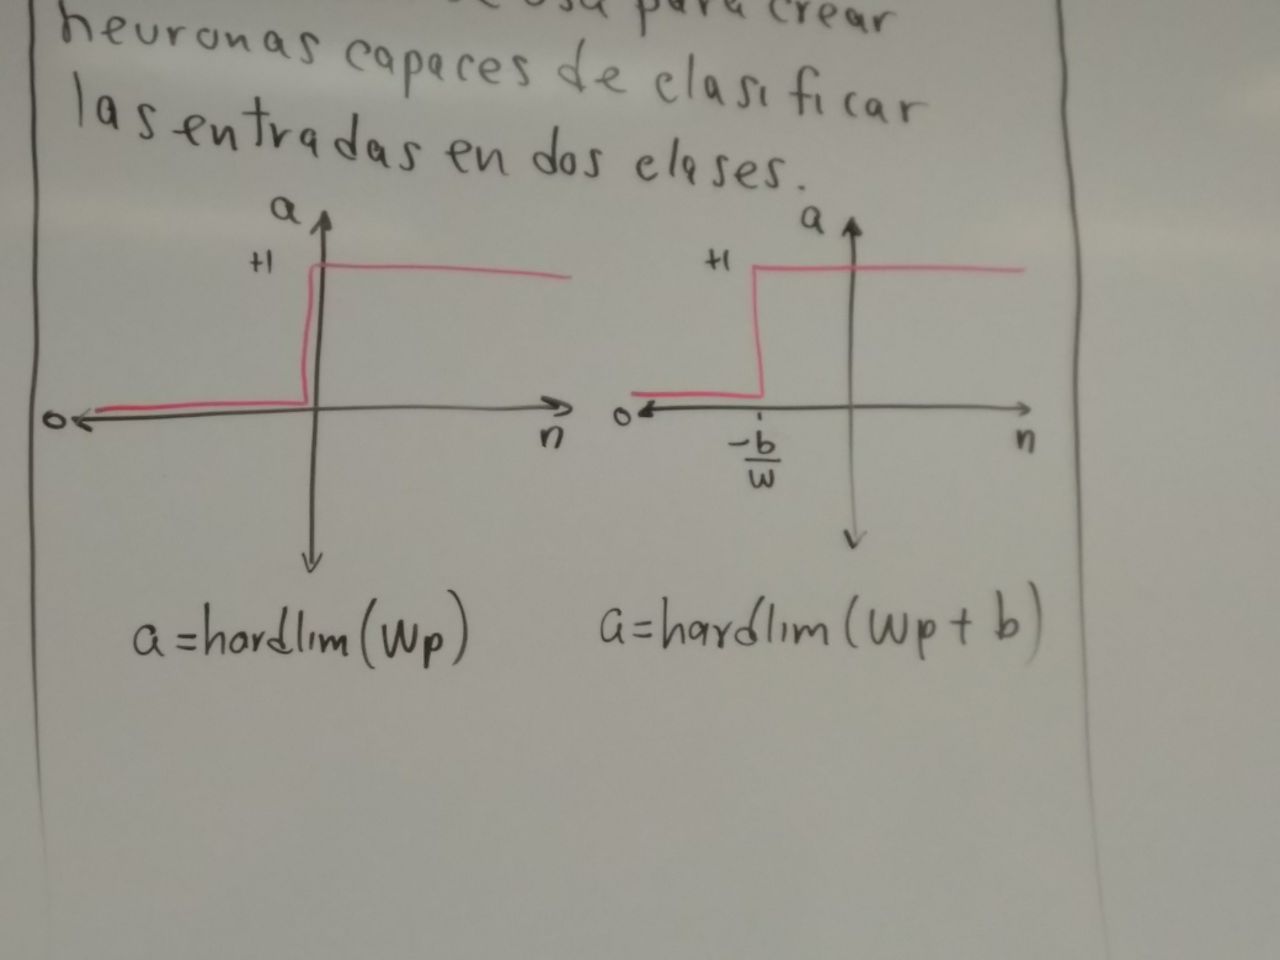 usa para crear
neuronas capaces de clasificar
las entradas en dos clases.
a
+1
0
n
a
+1
0
n
-b
w
a=hardlim(Wp)
a=hardlim(Wp+b)